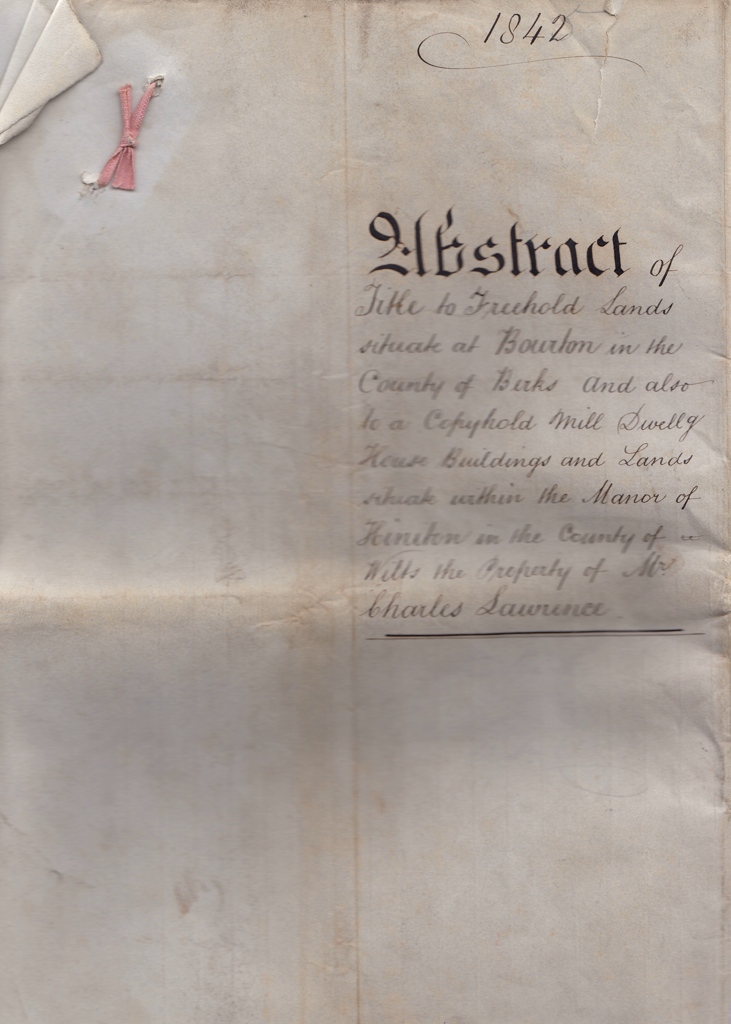 1842
Abstract of
Title to Freehold Lands
situate at Bourton in the
County of Berks and also
to a Copyhold Mill Dwellg
House Buildings and Lands
situate within the Manor of
Hineton in the County of
Wilts the Property of Mr
Charles Lawrence